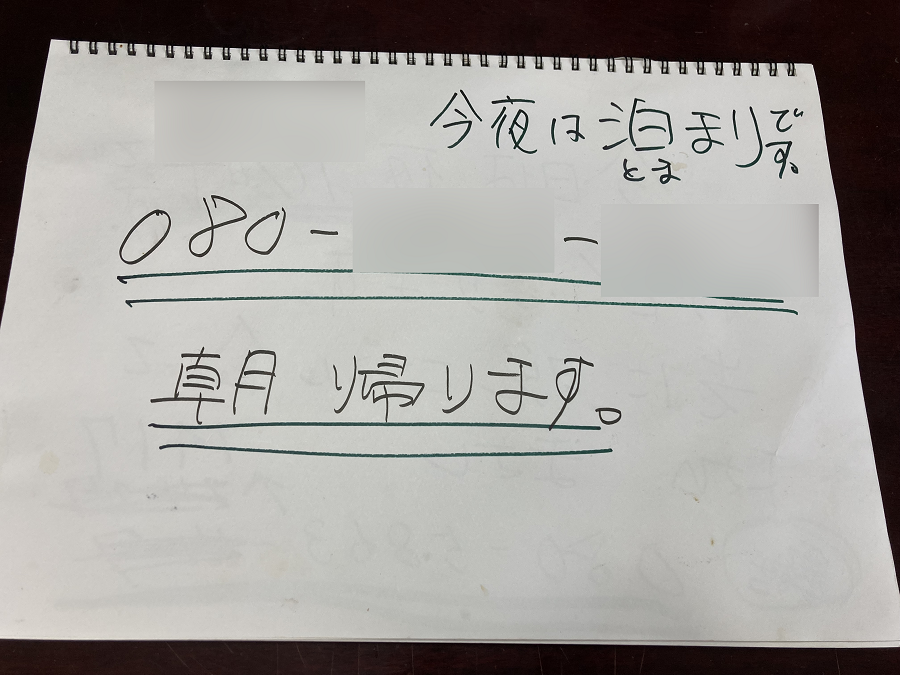 今夜は泊まりです。
とま
080- -
朝帰ります。